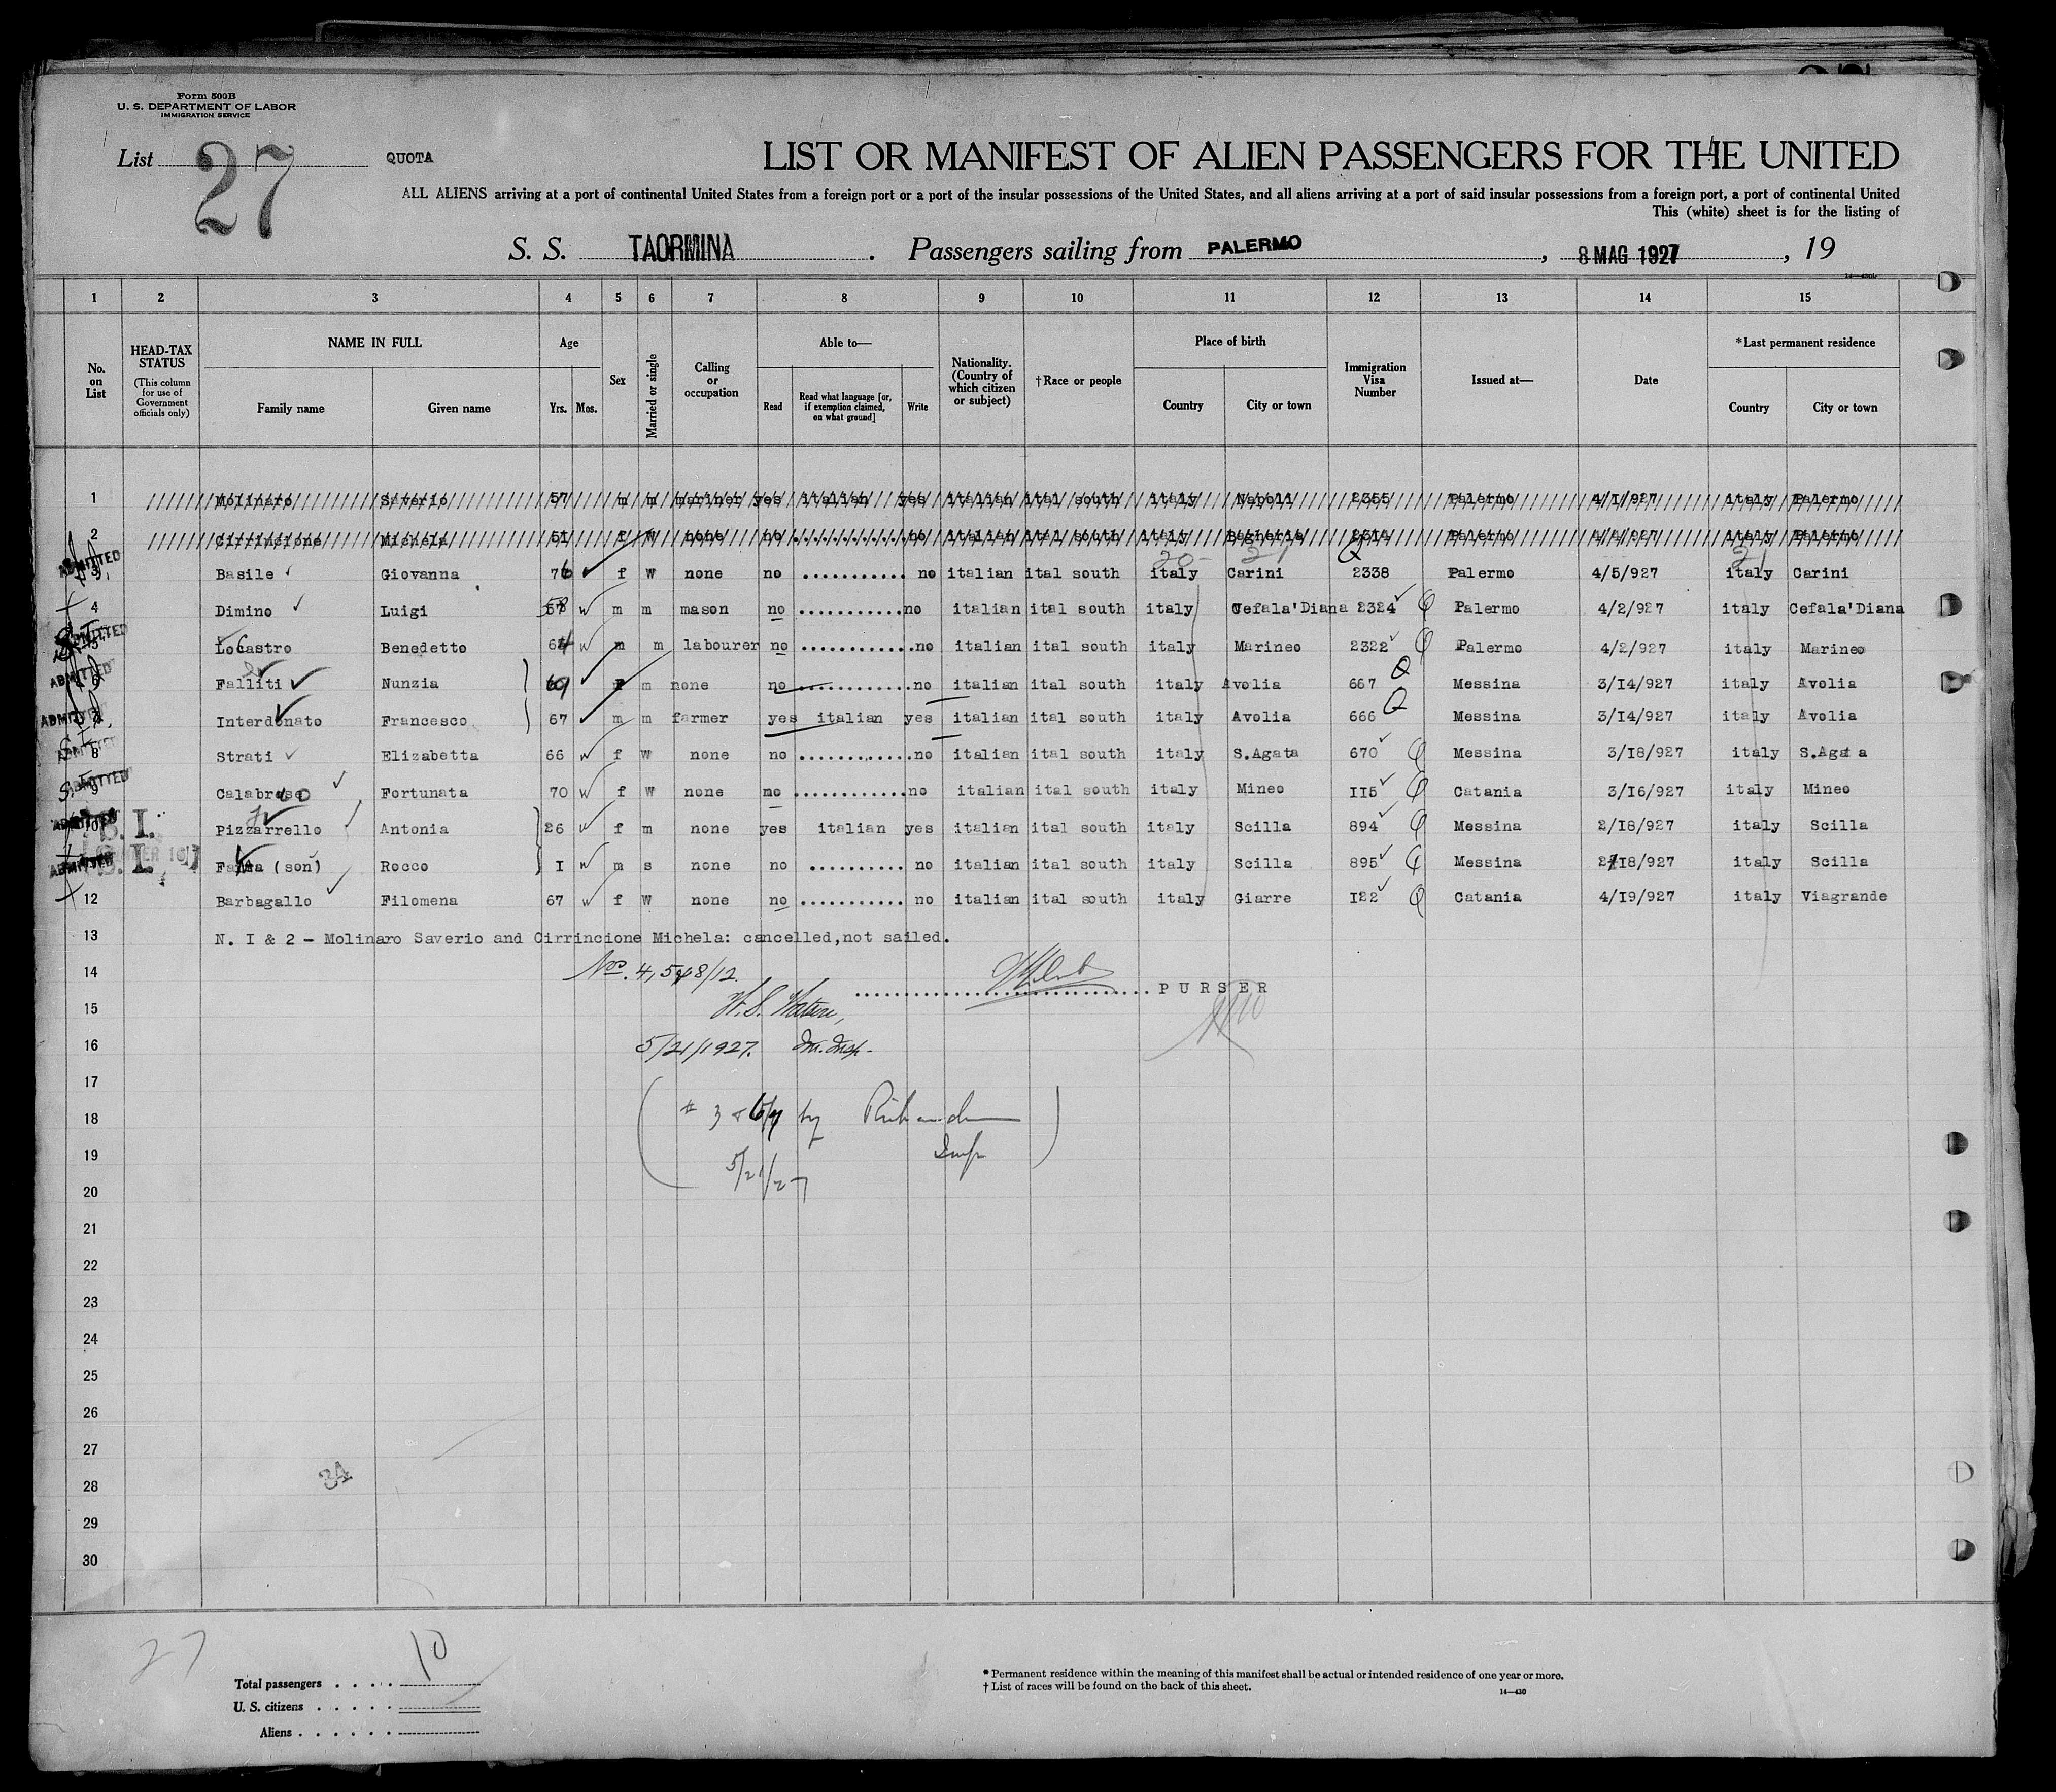 Form 500B
U. S. DEPARTMENT OF LABOR
IMMIGRATION SERVICE
List 27 QUOTA
LIST OR MANIFEST OF ALIEN PASSENGERS FOR THE UNITED
ALL ALIENS arriving at a port of continental United States from a foreign port or a port of the insular possessions of the United States, and all aliens arriving at a port of said insular possessions from a foreign port, a port of continental United
This (white) sheet is for the listing of
S. S. TAORMINA . Passengers sailing from PALERMO , 8 MAG 1927 , 19
14—430b
1 2 3 4 5 6 7 8 9 10 11 12 13 14 15
No. on List
HEAD-TAX STATUS (This column for use of Government officials only)
NAME IN FULL Family name Given name
Age Yrs. Mos.
Sex
Married or single
Calling or occupation
Able to— Read Read what language [or, if exemption claimed, on what ground] Write
Nationality. (Country of which citizen or subject)
†Race or people
Place of birth Country City or town
Immigration Visa Number
Issued at—
Date
*Last permanent residence Country City or town
1 Molinaro Saverio 57 m m mariner yes italian yes italian ital south italy Napoli 2355 Palermo 4/1/927 italy Palermo
2 Cirrincione Michela 51 f w none no no italian ital south italy Bagheria 2314 Palermo 4/1/927 italy Palermo
ADMITTED 3 Basile Giovanna 76 f w none no ........... no italian ital south italy Carini 2338 Palermo 4/5/927 italy Carini
4 Dimino Luigi 58 w m m mason no ............no italian ital south italy Cefala'Diana 2324 Q Palermo 4/2/927 italy Cefala'Diana
ADMITTED 5 LoCastro Benedetto 64 w m m labourer no ............no italian ital south italy Marineo 2322 Q Palermo 4/2/927 italy Marineo
ADMITTED 6 Falliti Nunzia 69 f m none no ............no italian ital south italy Avolia 667 Q Messina 3/14/927 italy Avolia
ADMITTED 7 Interdonato Francesco 67 m m farmer yes italian yes italian ital south italy Avolia 666 Q Messina 3/14/927 italy Avolia
ADMITTED 8 Strati Elizabetta 66 w f W none no ............no italian ital south italy S.Agata 670 Q Messina 3/18/927 italy S.Agat a
ADMITTED 9 Calabrese Fortunata 70 w f W none no ............no italian ital south italy Mineo 115 Q Catania 3/16/927 italy Mineo
ADMITTED 10 S. I. Pizzarrello Antonia 26 w f m none yes italian yes italian ital south italy Scilla 894 Q Messina 2/18/927 italy Scilla
ADMITTED S. I. (son) Rocco I w m s none no .......... no italian ital south italy Scilla 895 Q Messina 2/18/927 italy Scilla
12 Barbagallo Filomena 67 w f W none no ........... no italian ital south italy Giarre 122 Q Catania 4/19/927 italy Viagrande
13 N. I & 2 - Molinaro Saverio and Cirrincione Michela: cancelled,not sailed.
14 Nos. 4, 5 & 8/12.
PURSER
15 W. S.
16 5/21/1927. Im. Insp.
17
18 # 3 & 6/7 by
19 Insp
5/21/27
20
21
22
23
24
25
26
27
28 34
29
30
27
Total passengers . . . . 10
U. S. citizens . . . . .
Aliens . . . . . .
* Permanent residence within the meaning of this manifest shall be actual or intended residence of one year or more.
† List of races will be found on the back of this sheet.
14—430